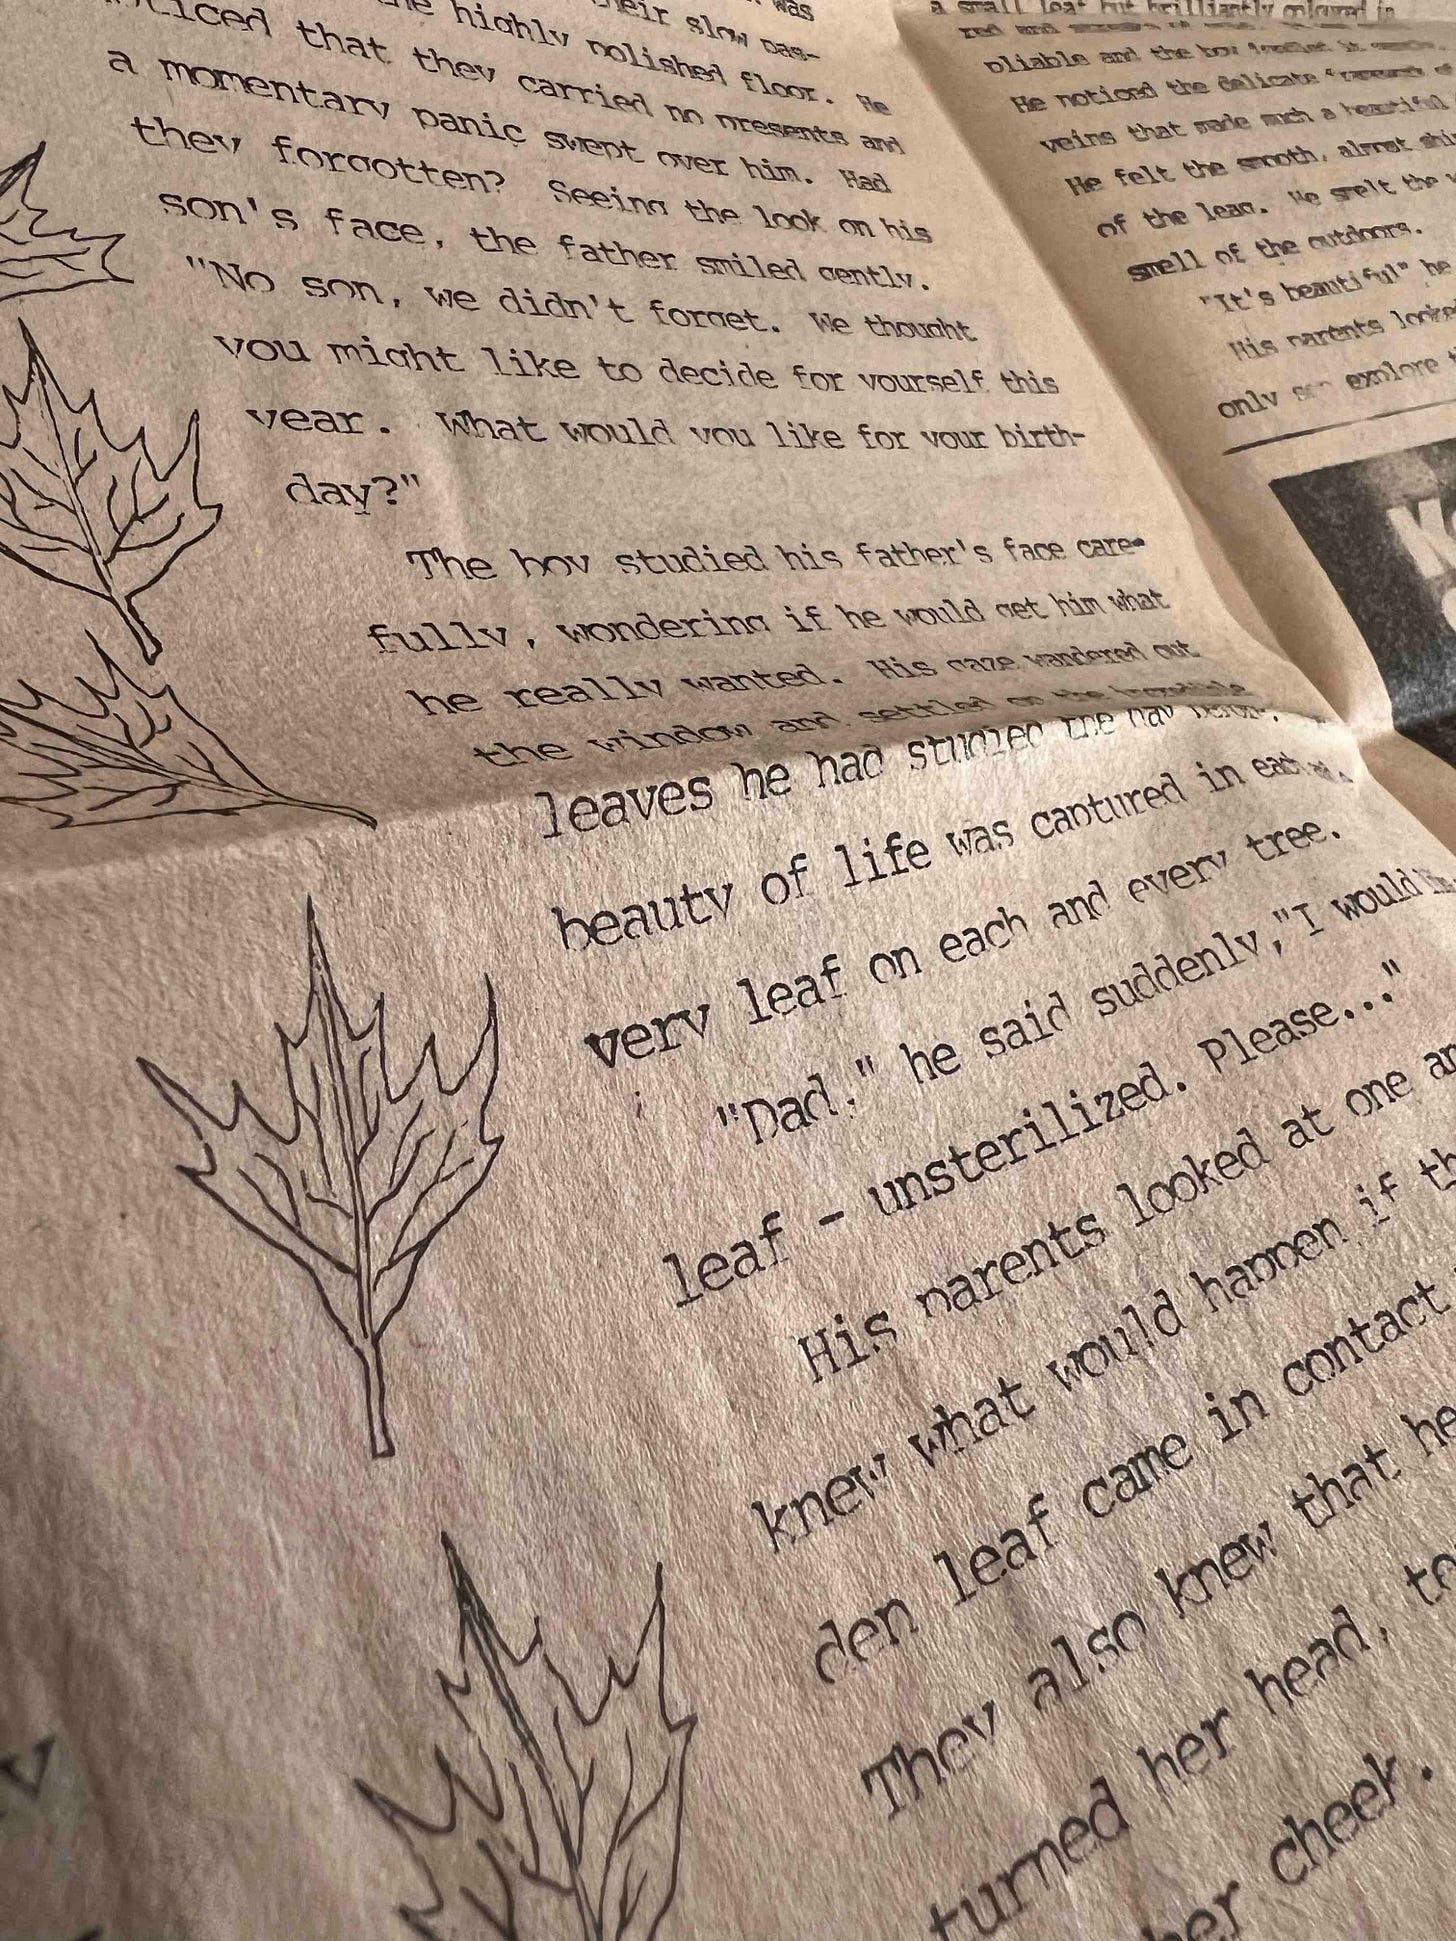 was
their slow pas-
the highly polished floor. He
noticed that they carried no presents and
a momentary panic swept over him. Had
they forgotten? Seeing the look on his
son's face, the father smiled gently.
"No son, we didn't forget. We thought
you might like to decide for yourself this
year. What would you like for your birth-
day?"
The boy studied his father's face care-
fully, wondering if he would get him what
he really wanted. His gaze wandered out
the window and settled on the incredible
leaves he had studied the day before.
beauty of life was captured in each and
very leaf on each and every tree.
"Dad," he said suddenly,"I would like
leaf - unsterilized. Please..."
His parents looked at one an
knew what would happen if th
den leaf came in contact
They also knew that he
turned her head, to
her cheek.
a small leaf but brilliantly coloured in
red and
pliable and the boy
He noticed the delicate
veins that made such a beautiful
He felt the smooth, almost shi
of the leag. He smelt the
smell of the outdoors.
"It's beautiful" he
His parents looke
only son explore
y